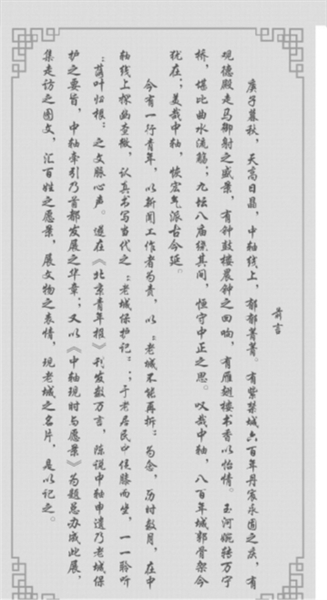 前言
庚子暮秋,天高日晶,中轴线上,郁郁菁菁。有紫禁城六百年丹宸永固之庆,有
观德殿走马御射之盛景,有钟鼓楼晨钟之回响,有雁翅楼书香以怡情。玉河婉转万宁
桥,堪比曲水流觞;九坛八庙绕其间,恒守中正之思。叹哉中轴,八百年城郭骨架今
犹在;美哉中轴,恢宏气派古今延。
今有一行青年,以新闻工作者为责,以“老城不能再拆”为念,历时数月,在中
轴线上探幽查微,认真书写当代之“老城保护记”;于老居民中促膝而坐,一一聆听
“落叶归根”之文脉心声。遂在《北京青年报》刊发数万言,陈说中轴申遗乃老城保
护之要旨,中轴牵引乃首都发展之华章;又以《中轴现时与愿景》为题总办成此展,
集走访之图文,汇百姓之愿景,展文物之表情,现老城之名片,是以记之。